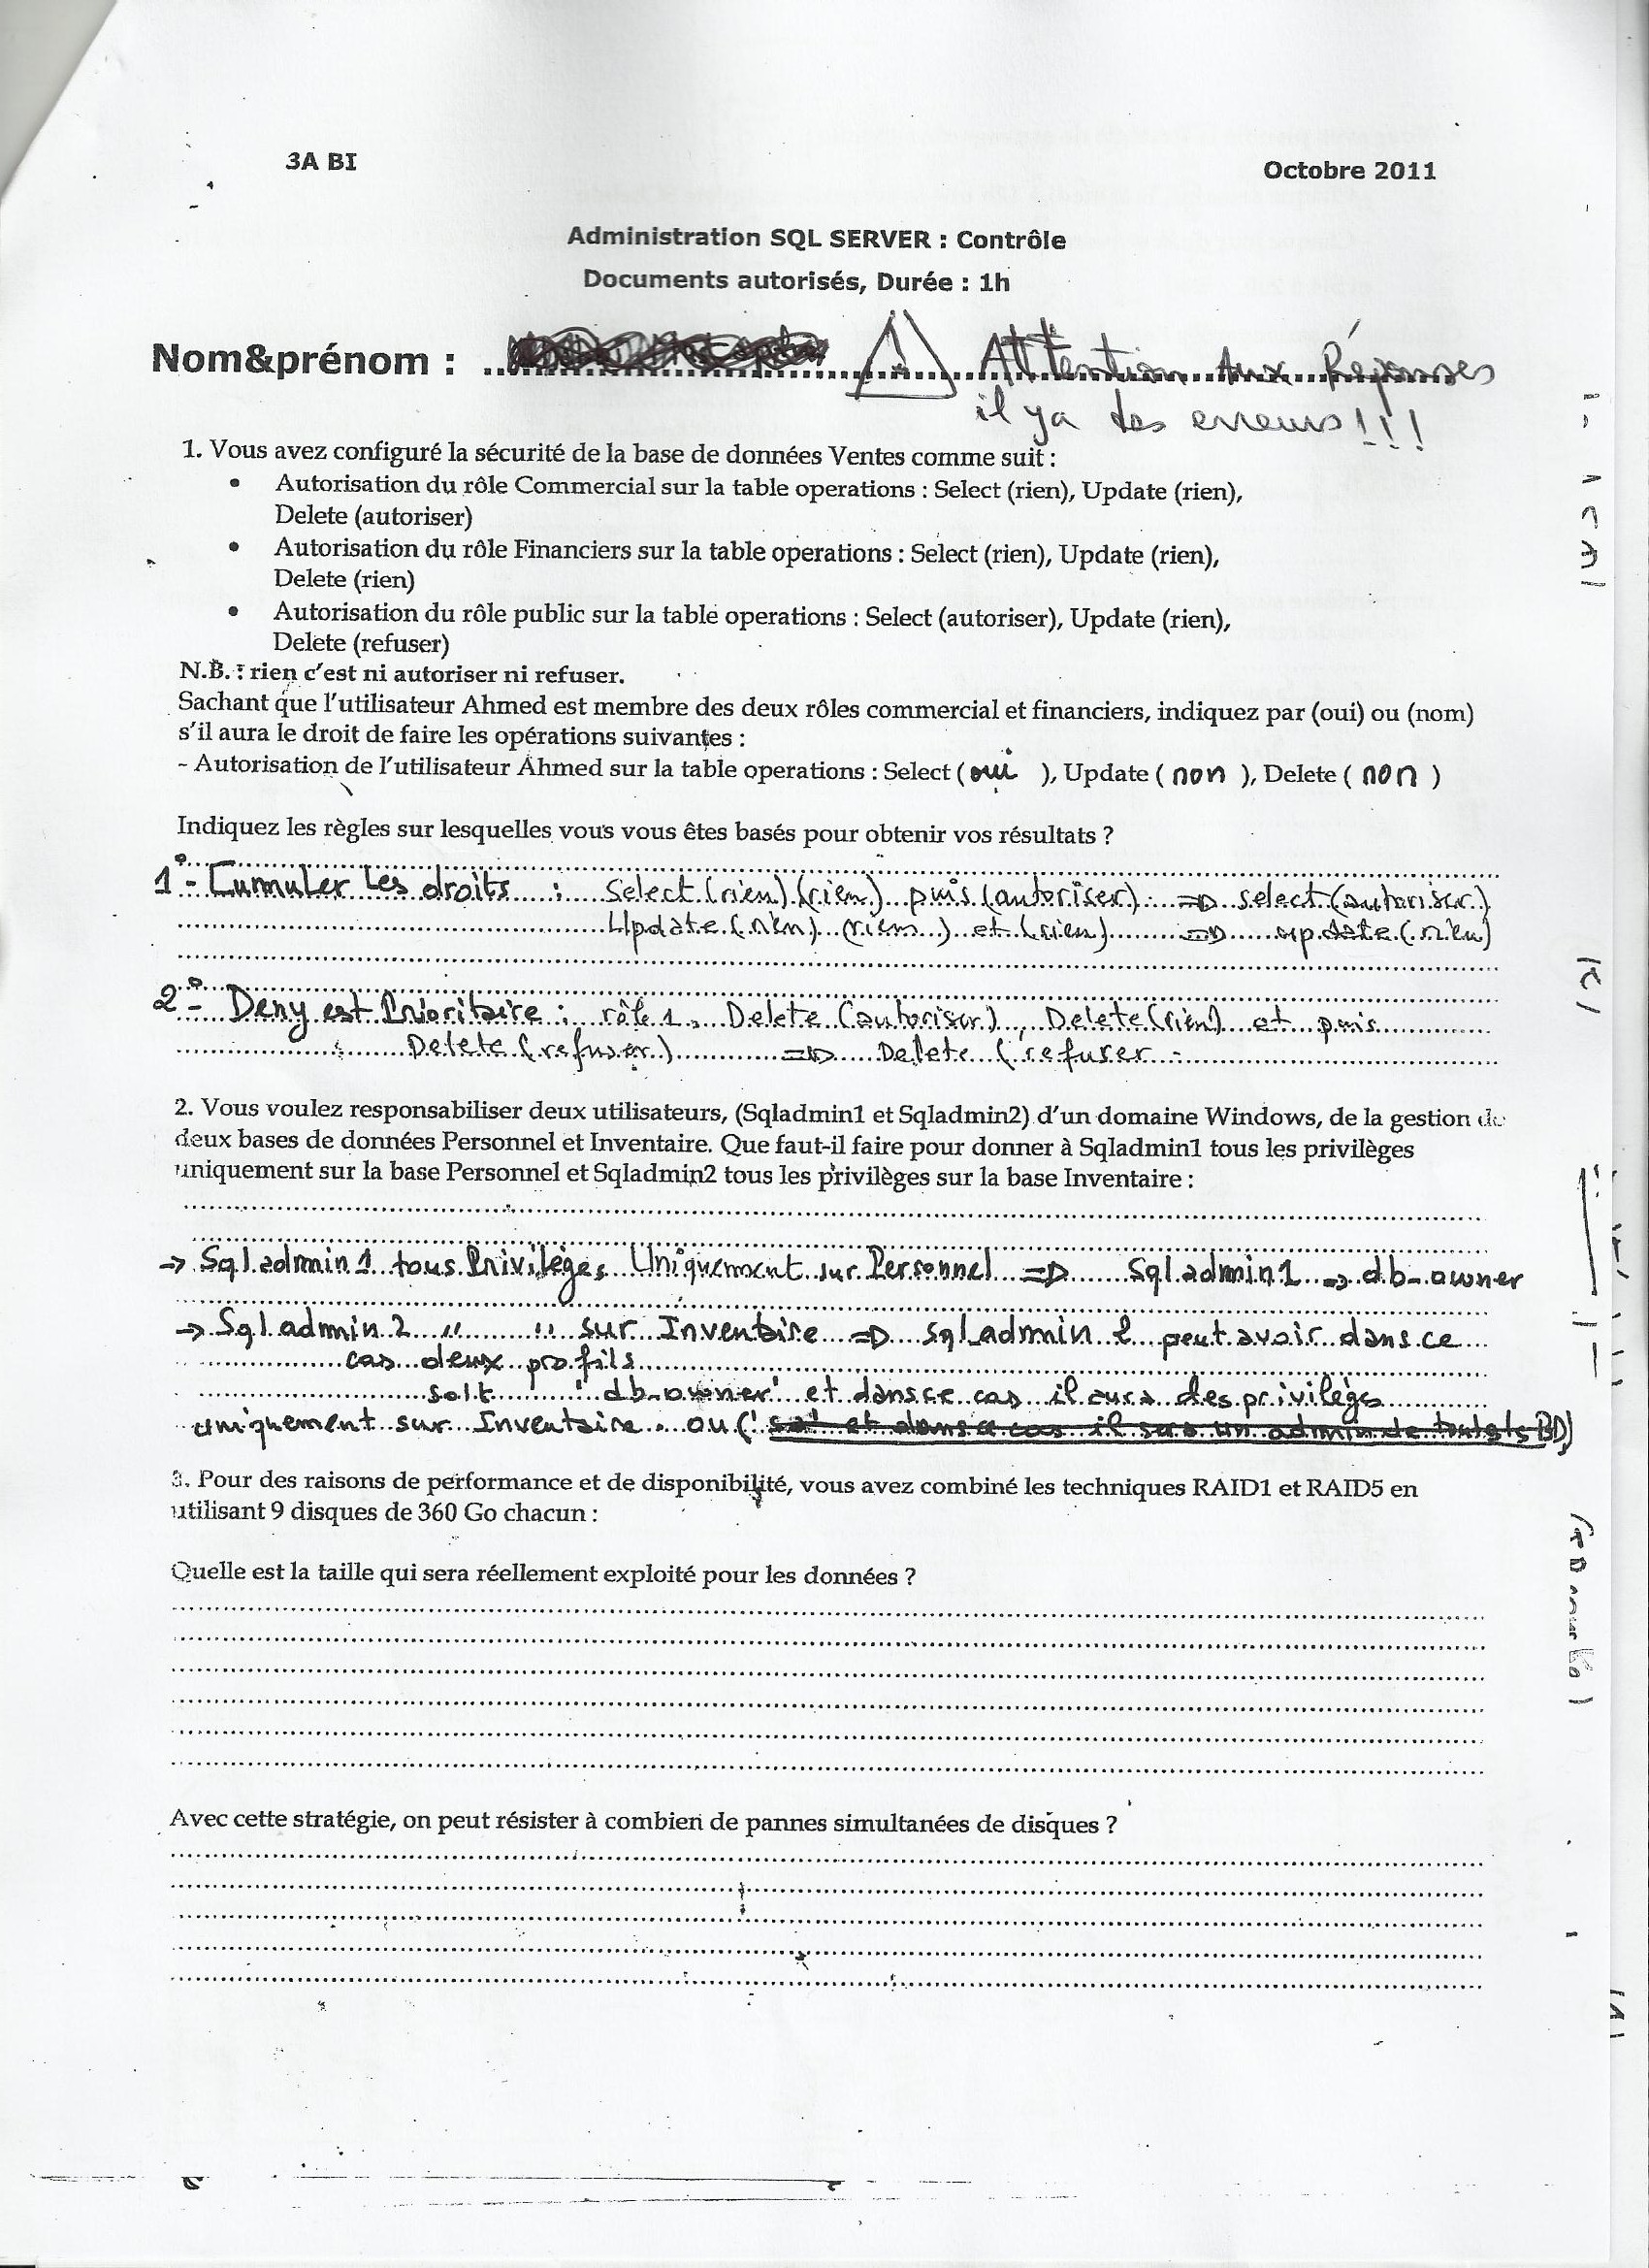 3A BI
Octobre 2011
Administration SQL SERVER : Contrôle
Documents autorisés, Durée : 1h
Nom&prénom :
Attention Aux Réponses
il ya des erreurs!!!
1. Vous avez configuré la sécurité de la base de données Ventes comme suit :
• Autorisation du rôle Commercial sur la table operations : Select (rien), Update (rien),
Delete (autoriser)
• Autorisation du rôle Financiers sur la table operations : Select (rien), Update (rien),
Delete (rien)
• Autorisation du rôle public sur la table operations : Select (autoriser), Update (rien),
Delete (refuser)
N.B. : rien c'est ni autoriser ni refuser.
Sachant que l'utilisateur Ahmed est membre des deux rôles commercial et financiers, indiquez par (oui) ou (nom)
s'il aura le droit de faire les opérations suivantes :
- Autorisation de l'utilisateur Ahmed sur la table operations : Select ( oui ), Update ( non ), Delete ( non )
Indiquez les règles sur lesquelles vous vous êtes basés pour obtenir vos résultats ?
1°- Cumuler les droits : Select (rien) (rien) puis (autoriser) => select (autoriser)
Update (rien) (rien) et (rien) => update (rien)
2°- Deny est Prioritaire : rôle 1, Delete (autoriser), Delete (rien) et puis
Delete (refuser) => Delete (refuser
2. Vous voulez responsabiliser deux utilisateurs, (Sqladmin1 et Sqladmin2) d'un domaine Windows, de la gestion de
deux bases de données Personnel et Inventaire. Que faut-il faire pour donner à Sqladmin1 tous les privilèges
uniquement sur la base Personnel et Sqladmin2 tous les privilèges sur la base Inventaire :
-> Sqladmin1 tous Privilèges Uniquement sur Personnel => Sqladmin1 -> db-owner
-> Sqladmin2 " " sur Inventaire => sqladmin 2 peut avoir dans ce
cas deux profils
soit 'db-owner' et dans ce cas il aura des privilègs
uniquement sur Inventaire. ou ('sa' et dans ce cas il sera un admin de toutes BD)
3. Pour des raisons de performance et de disponibilité, vous avez combiné les techniques RAID1 et RAID5 en
utilisant 9 disques de 360 Go chacun :
Quelle est la taille qui sera réellement exploité pour les données ?
Avec cette stratégie, on peut résister à combien de pannes simultanées de disques ?